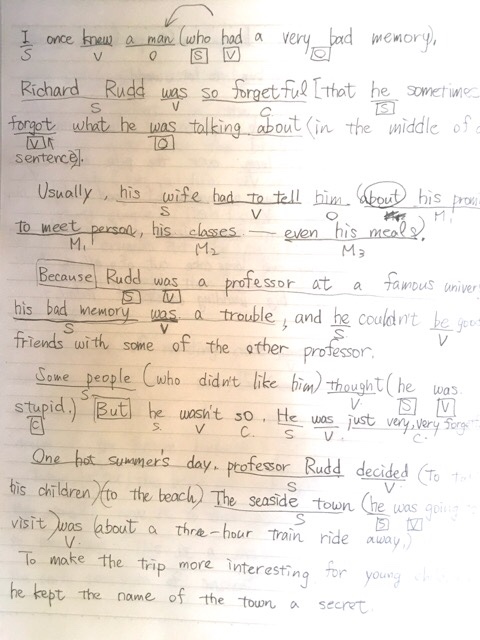 I once knew a man (who had a very bad memory).
S V O S V O
Richard Rudd was so forgetful [that he sometimes
S V C S
forgot what he was talking about (in the middle of a
V O
sentence)].
Usually, his wife had to tell him (about his
S V O M₁
to meet person, his classes — even his meals).
M₁ M₂ M₃
Because Rudd was a professor at a famous
S V
his bad memory was a trouble, and he couldn't be
S V S V
friends with some of the other professor.
Some people (who didn't like him) thought (he was
S V S V
stupid.) But he wasn't so. He was just very, very
C S V C. S V. C.
One hot summer's day, professor Rudd decided (To
S V
his children) (to the beach) The seaside town (he was going
S S V
visit) was (about a three-hour train ride away.)
V.
To make the trip more interesting for young
he kept the name of the town a secret.